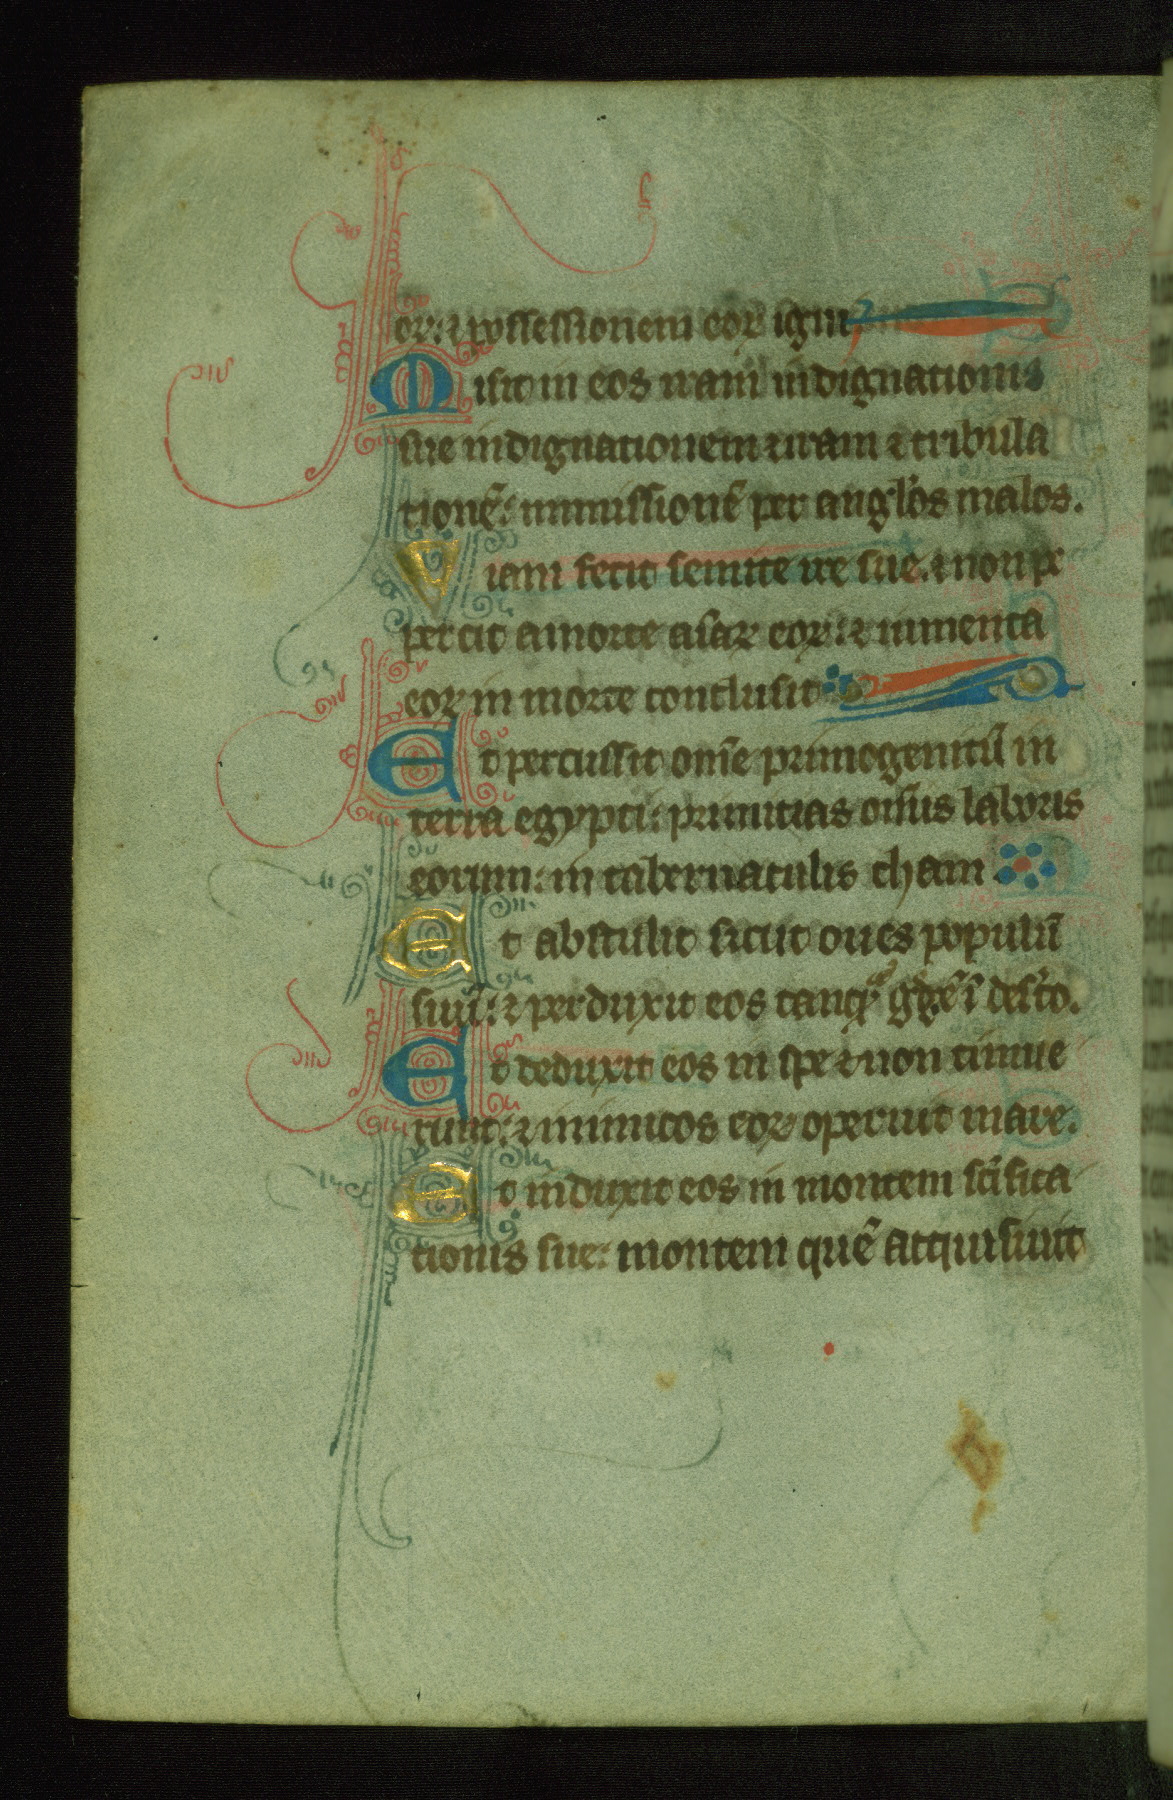 oꝝ: ⁊ possessionem eoꝝ igni
Misit in eos iram indignationis
sue indignationem ⁊ iram ⁊ tribula
tionē: inmissionē per anglos malos.
Viam fecit semite ire sue. ⁊ non pe
percit a morte aīar eoꝝ: ⁊ iumenta
eoꝝ in morte conclusit
Et percussit om̄e primogenitū in
terra egypti: primitias om̄is laboris
eorum: in tabernaculis cham.
Et abstulit sicut oues populū
suū: ⁊ perduxit eos tanq̄ gͣgē ī deſ̄to.
Et deduxit eos in spe ⁊ non timue
runt: ⁊ inimicos eoꝝ operuit mare.
Et induxit eos in montem sc̄ifica
tionis sue: montem quē acquisiuit